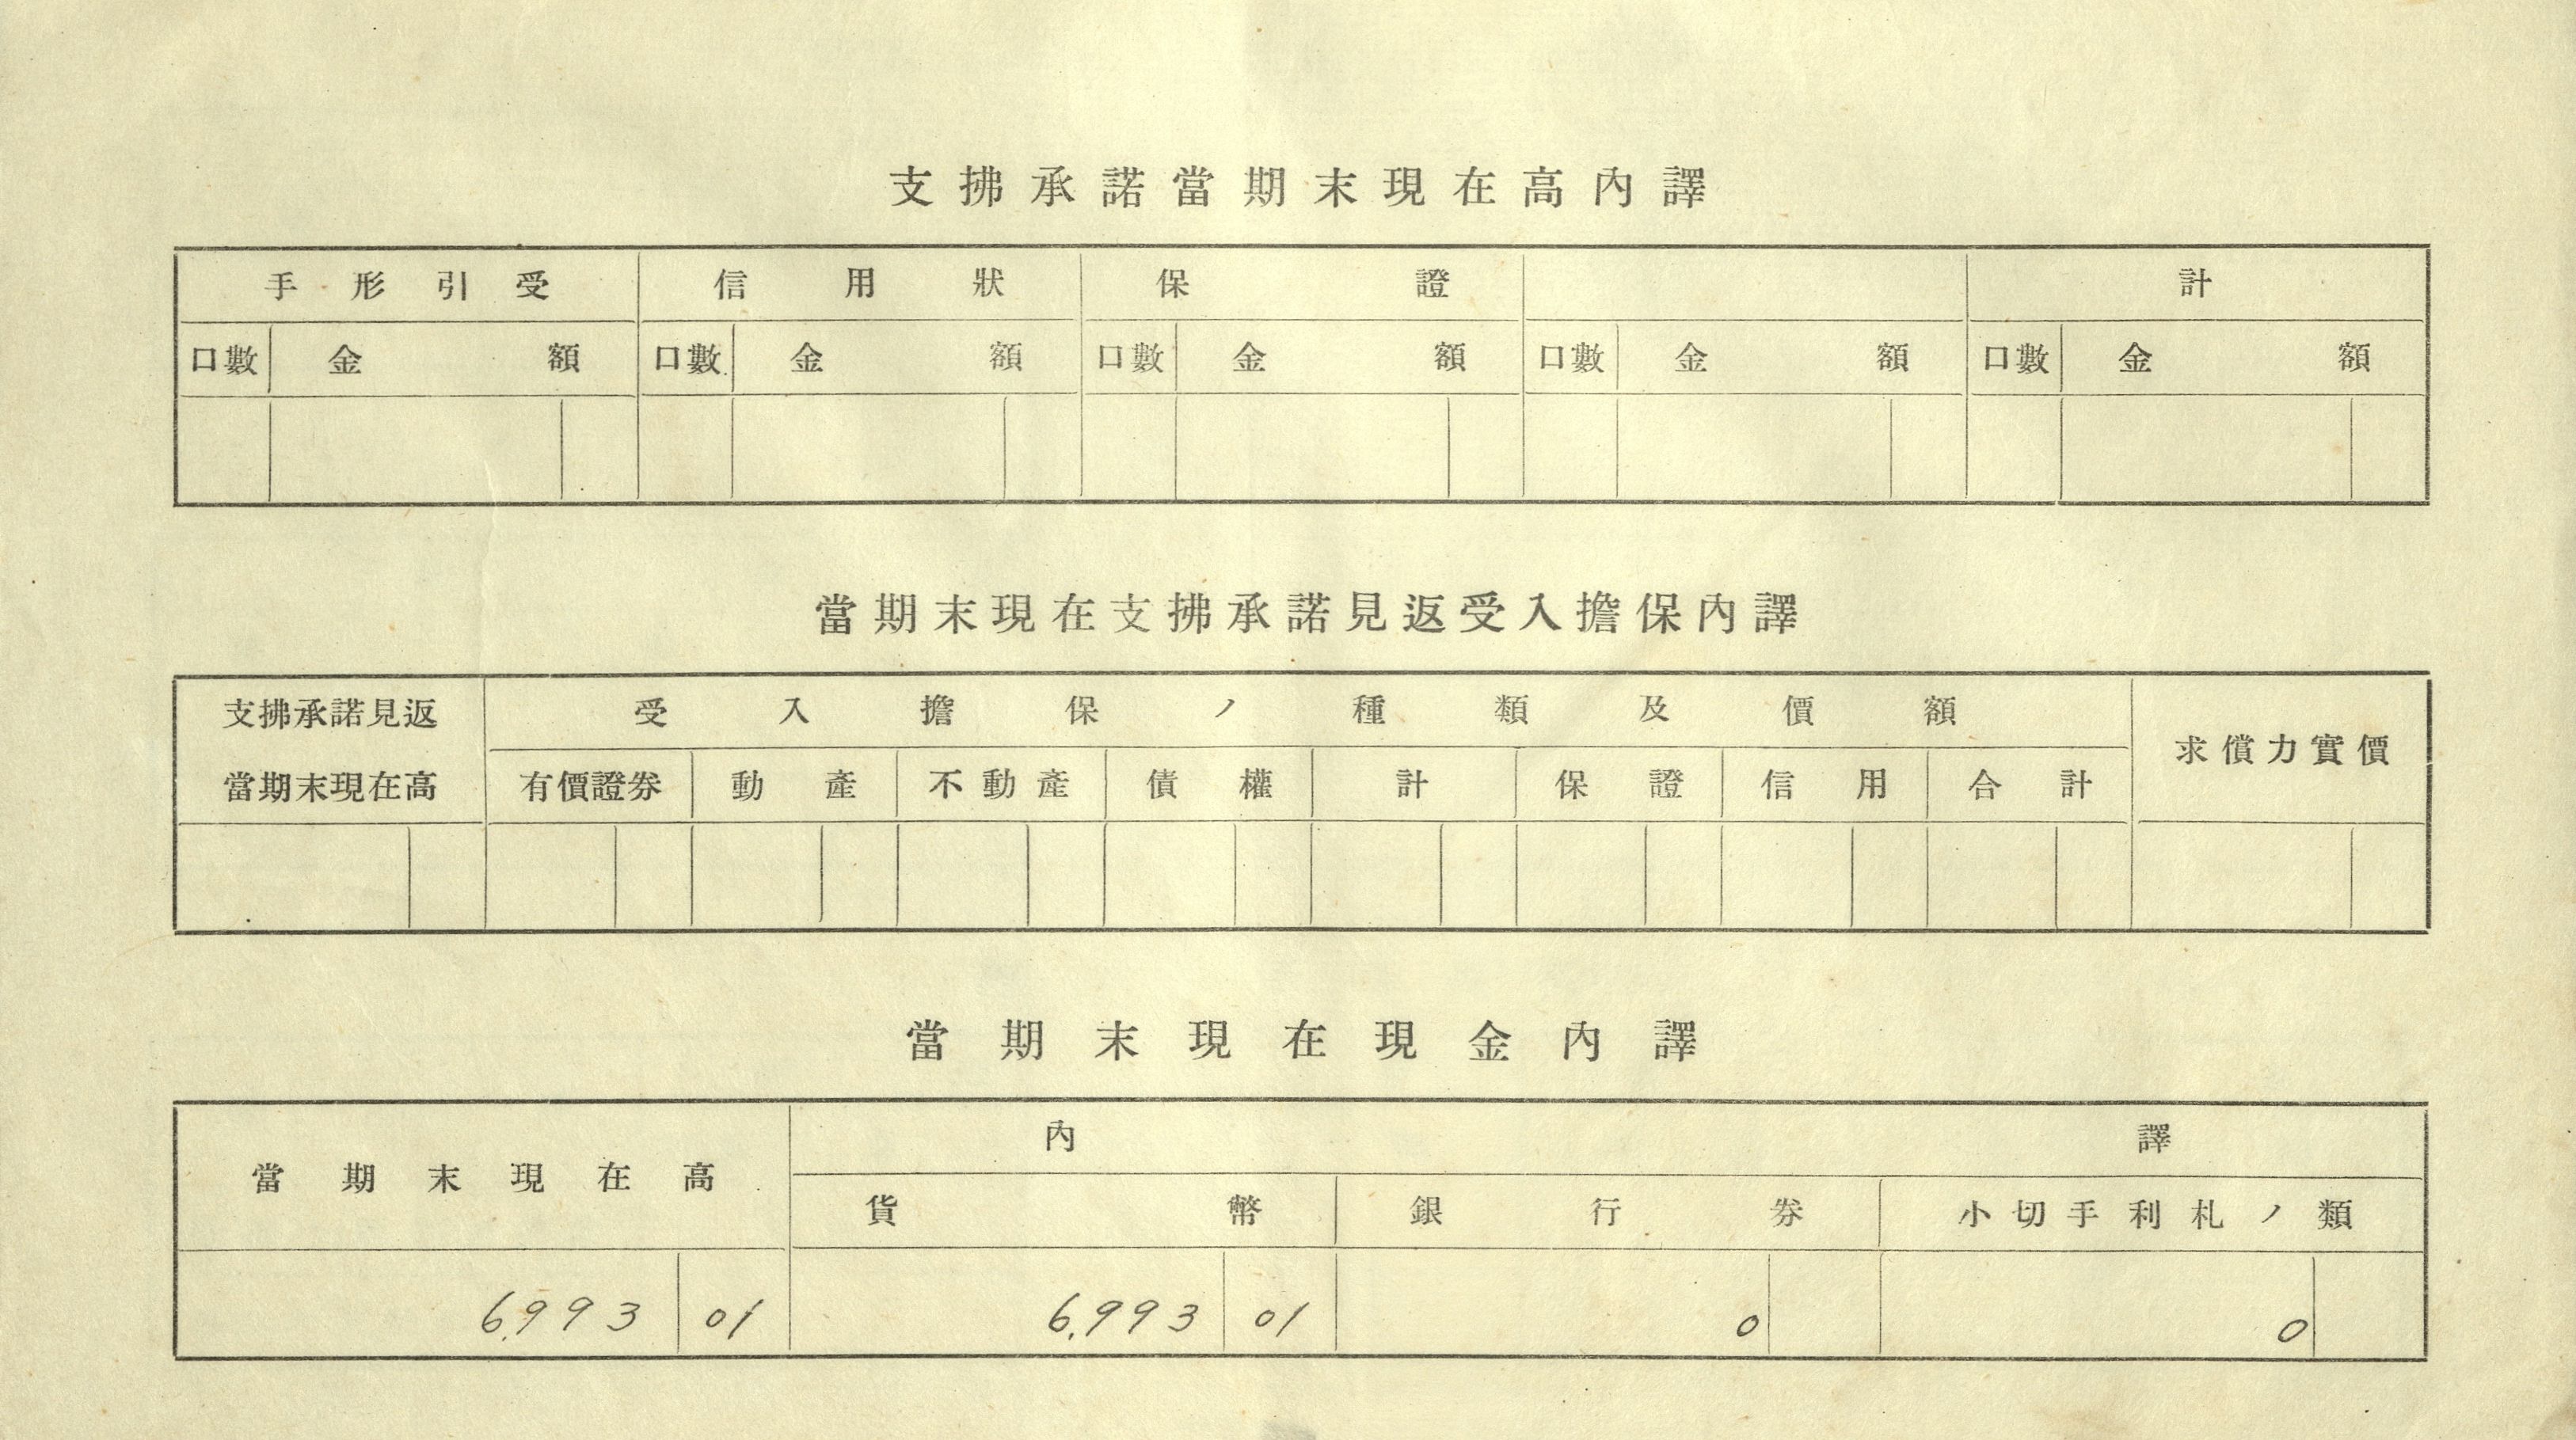 支拂承諾當期末現在高內譯
手形引受 信用狀 保證 計
口數 金額 口數 金額 口數 金額 口數 金額 口數 金額
當期末現在支拂承諾見返受入擔保內譯
支拂承諾見返 受入擔保ノ種類及價額
求償力實價
當期末現在高 有價證券 動產 不動產 債權 計 保證 信用 合計
當期末現在現金內譯
內譯
當期末現在高
貨幣 銀行券 小切手利札ノ類
6,993 01 6,993 01 0 0